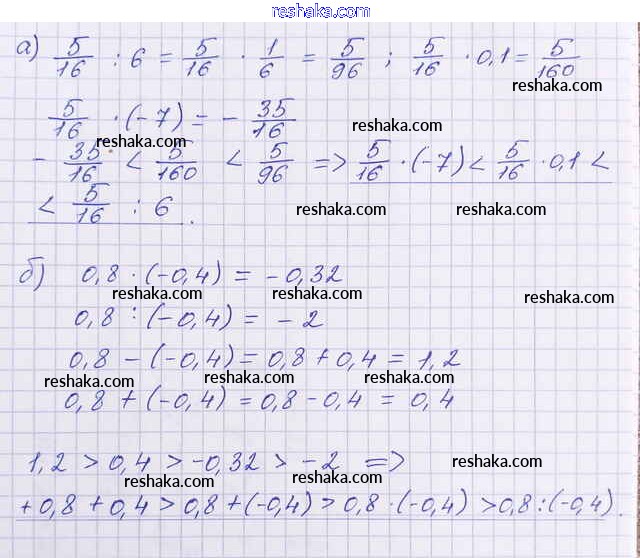 reshaka.com
а) 5/16 : 6 = 5/16 · 1/6 = 5/96 ; 5/16 · 0,1 = 5/160
5/16 · (-7) = - 35/16
reshaka.com reshaka.com
- 35/16 < 5/160 < 5/96 => 5/16 · (-7) < 5/16 · 0,1 <
< 5/16 : 6 .
reshaka.com reshaka.com
б) 0,8 · (-0,4) = -0,32
reshaka.com reshaka.com reshaka.com
0,8 : (-0,4) = -2
0,8 - (-0,4) = 0,8 + 0,4 = 1,2
reshaka.com reshaka.com reshaka.com
0,8 + (-0,4) = 0,8 - 0,4 = 0,4
1,2 > 0,4 > -0,32 > -2 =>
reshaka.com reshaka.com reshaka.com
+ 0,8 + 0,4 > 0,8 + (-0,4) > 0,8 · (-0,4) > 0,8 : (-0,4).